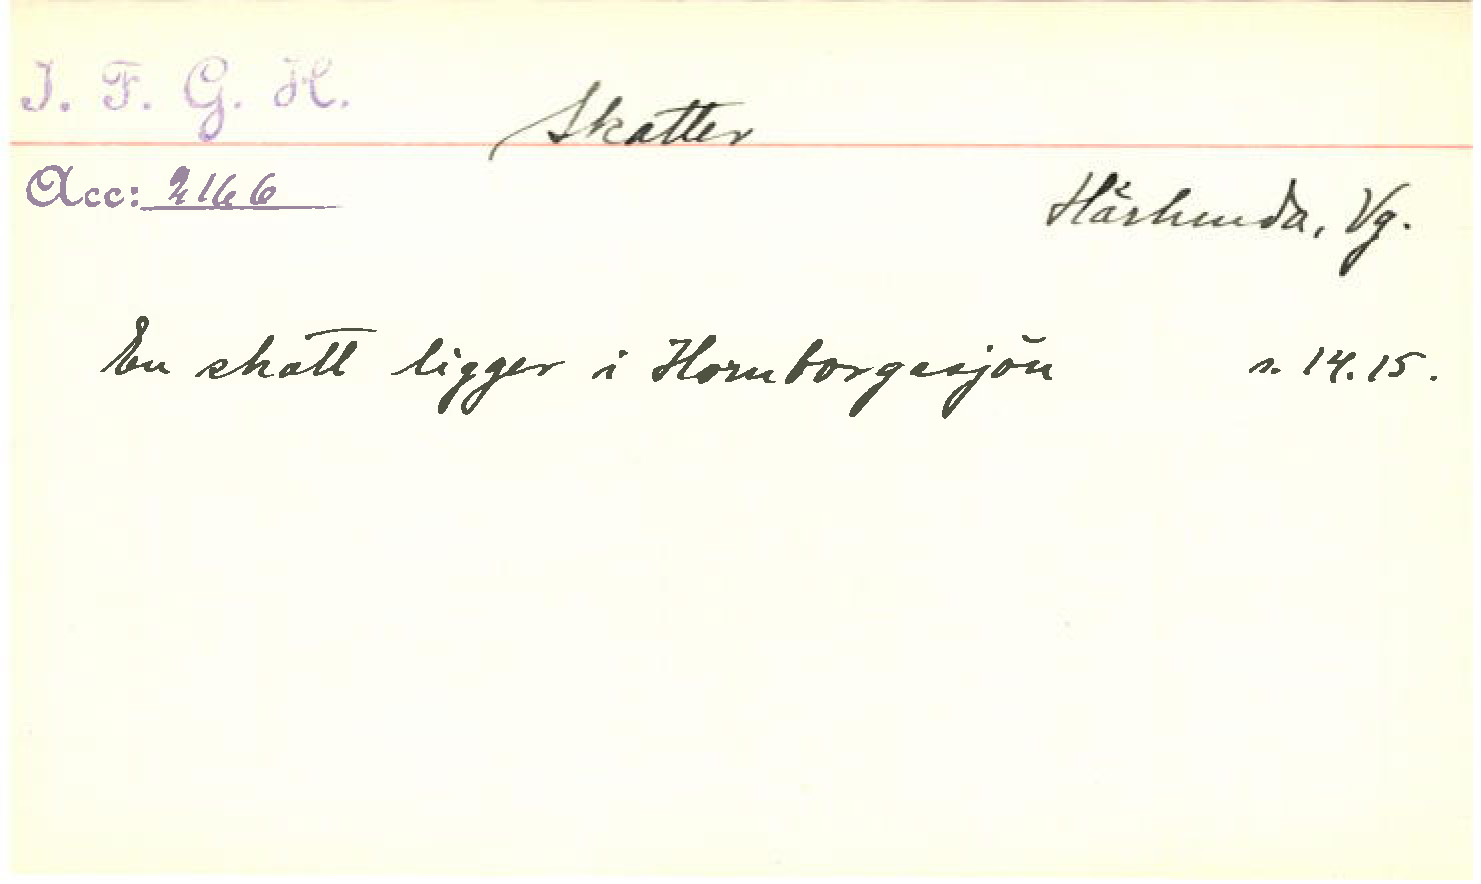 I. F. G. H.
Skatter
Acc: 2166
Härlunda, Vg.
En skatt ligger i Hornborgasjön s. 14.15.